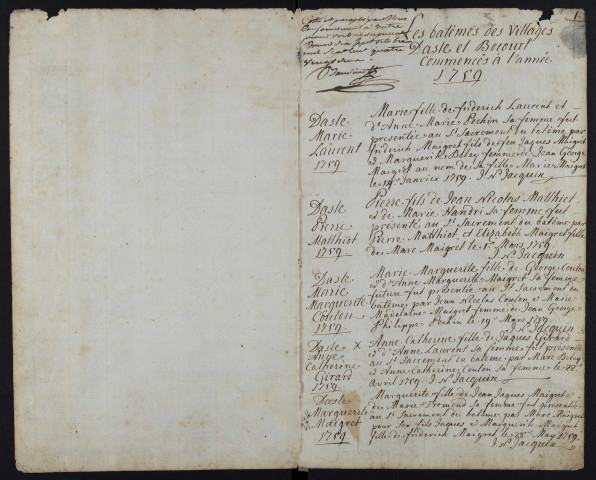 1
Cotté et paraphé par Nous
Les batêmes des Villages
Dasle et Becourt
Commencés à l'année
1759
Marie fille de friderich Laurent et
d'Anne Marie Pechin sa femme fut
présentée au St Sacrement du batême par
friderich Maigret fils de feu Jaques Maigret
et Marguerite Beley femme de Jean George
Maigret au nom de sa fille Marie Maigret
le 14e Janvier 1759. J. N. Jacquin
Dasle
Marie
Laurent
1759
Pierre fils de Jean Nicolas Matthiot
et de Marie Handri sa femme fut
présenté au St Sacrement du batême par
Pierre Matthiot, et Elizabeth Maigret fille
de Marc Maigret le 1r Mars 1759
J. N. Jacquin
Dasle
Pierre
Matthiot
1759
Marie Marguerite fille de George Coulon
et d'Anne Marguerite Maigret sa femme
future fut présentée au St Sacrement du
batême par Jean Nicolas Coulon et Marie
Madelaine Maigret femme de Jean George
Philippe Pechin le 19e Mars 1759.
J. N. Jacquin
Dasle
Marie
Marguerite
Coulon
1759
Anne Catherine fille de Jaques Girard
et d'Anne Laurent sa femme fut présentée
au St Sacrement du batême par Marc Beley
et Anne Catherine Coulon sa femme le 22e
Avril 1759 J. N. Jacquin
Dasle x
Anne
Catherine
Girard
1759
Marguerite fille de Jean Jaques Maigret
de Marie fremond sa femme fut présentée
au St Sacrement du batême par Marc Maigret
pour son fils Jaques et Marguerite Maigret
fille de friderich Maigret le 25e May 1759.
J. N. Jacquin
Dasle
Marguerite
Maigret
1759